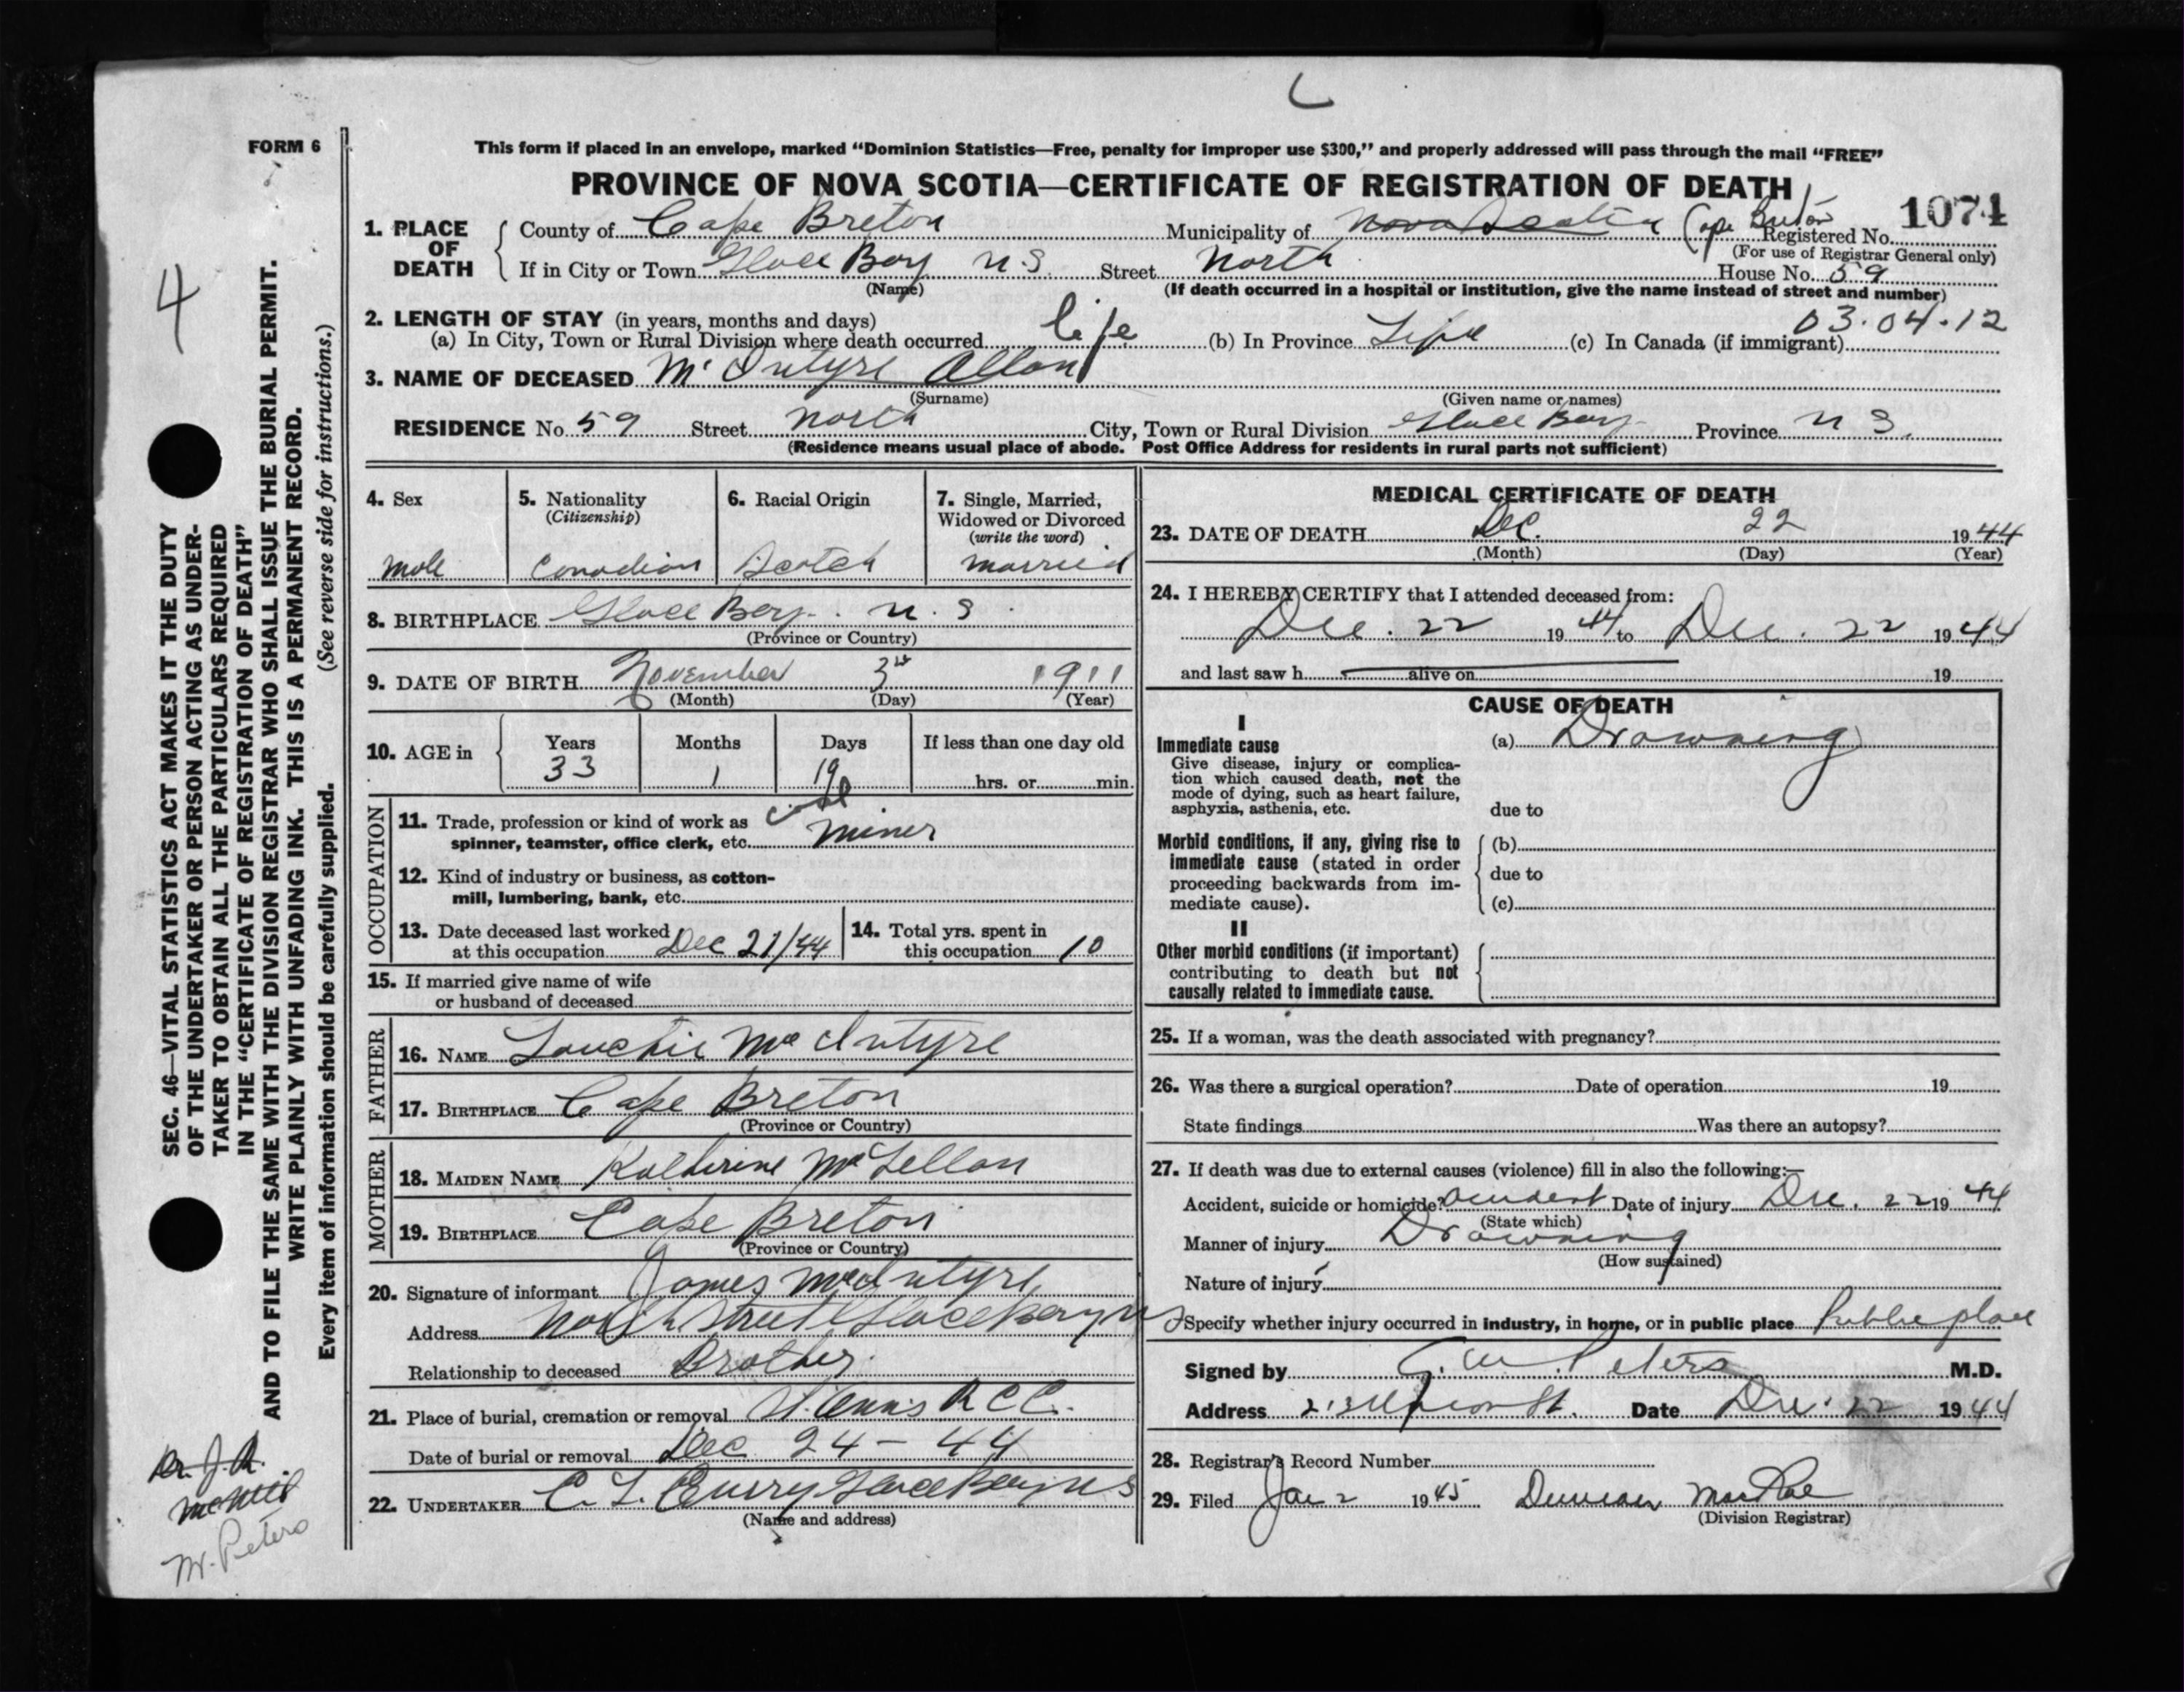 FORM 6
This form if placed in an envelope, marked "Dominion Statistics—Free, penalty for improper use $300," and properly addressed will pass through the mail "FREE"
PROVINCE OF NOVA SCOTIA—CERTIFICATE OF REGISTRATION OF DEATH
1074
1. PLACE OF DEATH
County of Cape Breton Municipality of Nova Scotia Cape Breton Registered No.
(For use of Registrar General only)
If in City or Town Glace Bay N.S. Street North House No. 59
(Name) (If death occurred in a hospital or institution, give the name instead of street and number)
2. LENGTH OF STAY (in years, months and days) 03.04.12
(a) In City, Town or Rural Division where death occurred life (b) In Province Life (c) In Canada (if immigrant)
3. NAME OF DECEASED Mc Intyre Allan
(Surname) (Given name or names)
RESIDENCE No. 59 Street North City, Town or Rural Division Glace Bay Province N S.
(Residence means usual place of abode. Post Office Address for residents in rural parts not sufficient)
4. Sex
male
5. Nationality
(Citizenship)
Canadian
6. Racial Origin
Scotch
7. Single, Married,
Widowed or Divorced
(write the word)
married
8. BIRTHPLACE Glace Bay. N. S
(Province or Country)
9. DATE OF BIRTH November 3rd 1911
(Month) (Day) (Year)
10. AGE in
Years Months Days If less than one day old
33 1 19 hrs. or min.
OCCUPATION
11. Trade, profession or kind of work as coal
spinner, teamster, office clerk, etc. miner
12. Kind of industry or business, as cotton-
mill, lumbering, bank, etc.
13. Date deceased last worked
at this occupation Dec 21/44
14. Total yrs. spent in
this occupation 10
15. If married give name of wife
or husband of deceased
FATHER
16. NAME Lauchie McIntyre
17. BIRTHPLACE Cape Breton
(Province or Country)
MOTHER
18. MAIDEN NAME Katherine McLellan
19. BIRTHPLACE Cape Breton
(Province or Country)
20. Signature of informant James McIntyre
Address North Street Glace Bay NS
Relationship to deceased Brother.
21. Place of burial, cremation or removal St. Anns R C C.
Date of burial or removal Dec 24 - 44
22. UNDERTAKER C. L. Curry Glace Bay N S
(Name and address)
MEDICAL CERTIFICATE OF DEATH
23. DATE OF DEATH Dec. 22 1944
(Month) (Day) (Year)
24. I HEREBY CERTIFY that I attended deceased from:
Dec. 22 1944 to Dec. 22 1944
and last saw h alive on 19
CAUSE OF DEATH
I
Immediate cause
Give disease, injury or complica-
tion which caused death, not the
mode of dying, such as heart failure,
asphyxia, asthenia, etc.
(a) Drowning
due to
Morbid conditions, if any, giving rise to
immediate cause (stated in order
proceeding backwards from im-
mediate cause).
(b)
due to
(c)
II
Other morbid conditions (if important)
contributing to death but not
causally related to immediate cause.
25. If a woman, was the death associated with pregnancy?
26. Was there a surgical operation? Date of operation 19
State findings Was there an autopsy?
27. If death was due to external causes (violence) fill in also the following:—
Accident, suicide or homicide? accident Date of injury Dec. 22 1944
(State which)
Manner of injury Drowning
(How sustained)
Nature of injury
Specify whether injury occurred in industry, in home, or in public place Public place
Signed by G. W. Peters M.D.
Address Union St. Date Dec. 22 1944
28. Registrar's Record Number
29. Filed Jan 2 1945 Duncan MacRae
(Division Registrar)
4
SEC. 46—VITAL STATISTICS ACT MAKES IT THE DUTY
OF THE UNDERTAKER OR PERSON ACTING AS UNDER-
TAKER TO OBTAIN ALL THE PARTICULARS REQUIRED
IN THE "CERTIFICATE OF REGISTRATION OF DEATH"
AND TO FILE THE SAME WITH THE DIVISION REGISTRAR WHO SHALL ISSUE THE BURIAL PERMIT.
WRITE PLAINLY WITH UNFADING INK. THIS IS A PERMANENT RECORD.
Every item of information should be carefully supplied. (See reverse side for instructions.)
Dr. J. A.
McNeil
Mr. Peters